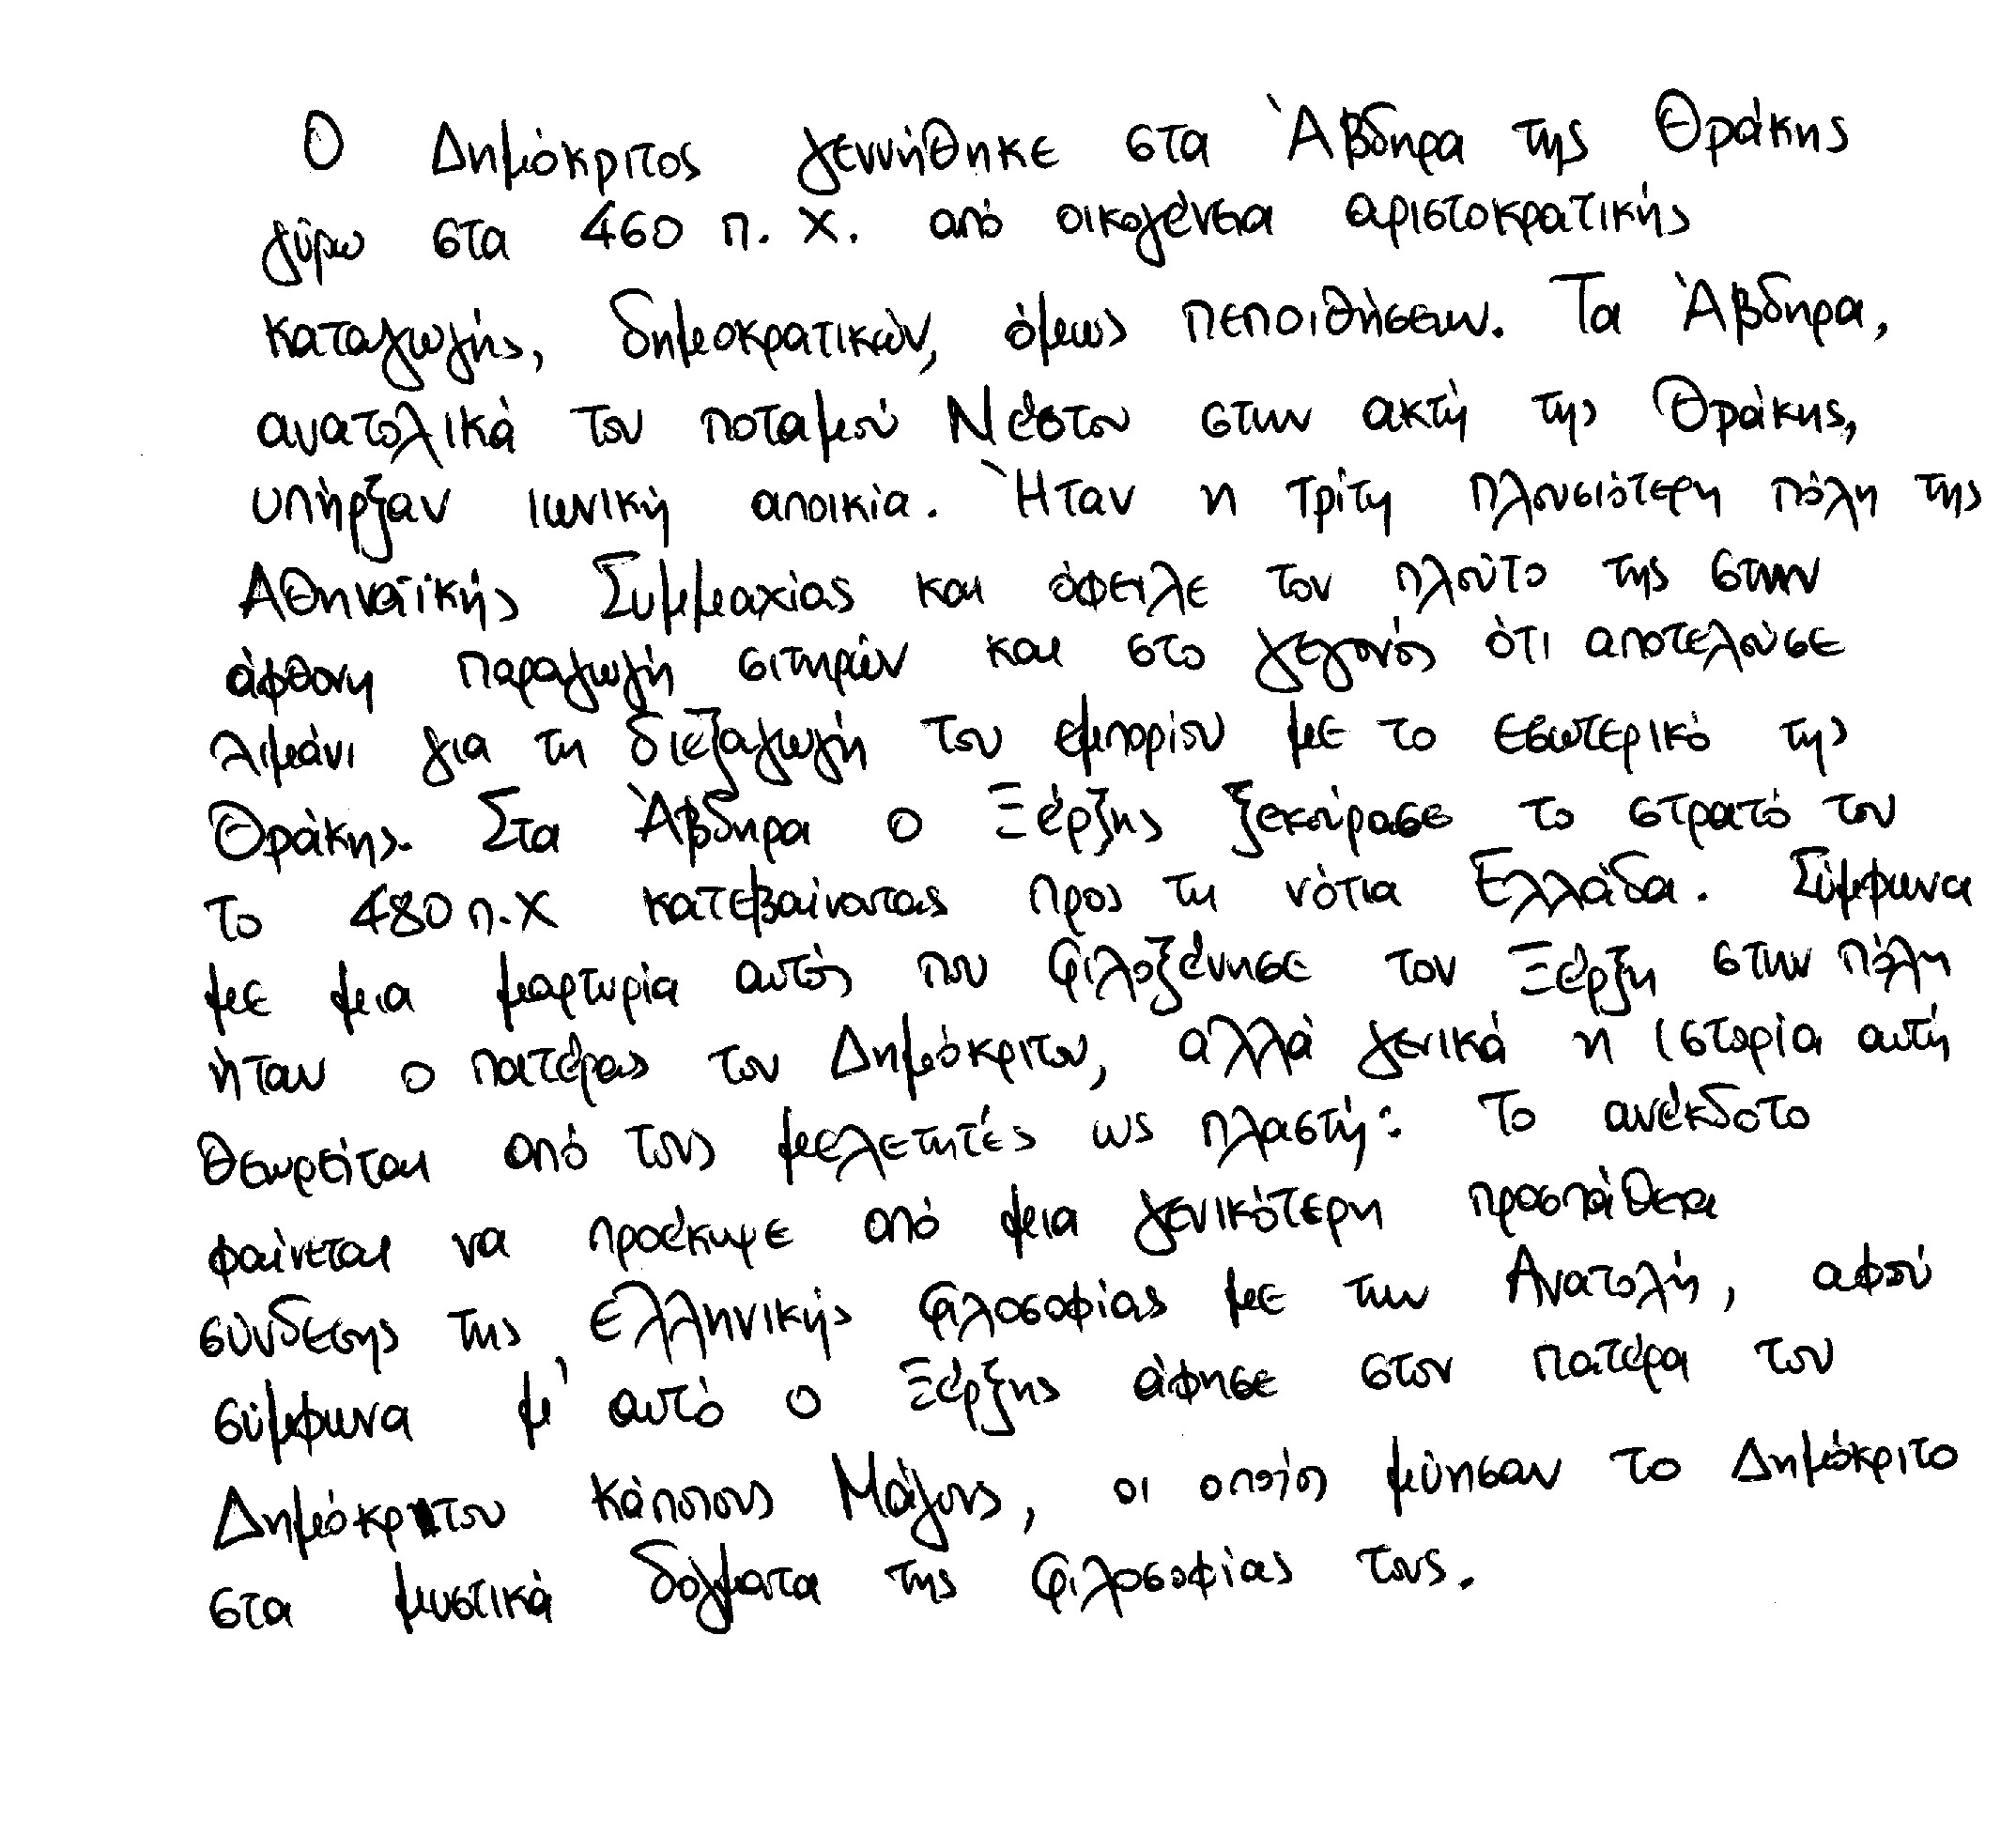 Ο Δημόκριτος γεννήθηκε στα Άβδηρα της Θράκης
γύρω στα 460 π. Χ. από οικογένεια αριστοκρατικής
καταγωγής, δημοκρατικών, όμως πεποιθήσεων. Τα Άβδηρα,
ανατολικά του ποταμού Νέστου στην ακτή της Θράκης,
υπήρξαν ιωνική αποικία. Ήταν η τρίτη πλουσιότερη πόλη της
Αθηναϊκής Συμμαχίας και όφειλε τον πλούτο της στην
άφθονη παραγωγή σιτηρών και στο γεγονός ότι αποτελούσε
λιμάνι για τη διεξαγωγή του εμπορίου με το εσωτερικό της
Θράκης. Στα Άβδηρα ο Ξέρξης ξεκούρασε το στρατό του
το 480 π.Χ κατεβαίνοντας προς τη νότια Ελλάδα. Σύμφωνα
με μια μαρτυρία αυτός που φιλοξένησε τον Ξέρξη στην πόλη
ήταν ο πατέρας του Δημόκριτου, αλλά γενικά η ιστορία αυτή
θεωρείται από τους μελετητές ως πλαστή: το ανέκδοτο
φαίνεται να προέκυψε από μια γενικότερη προσπάθεια
σύνδεσης της ελληνικής φιλοσοφίας με την Ανατολή, αφού
σύμφωνα μ' αυτό ο Ξέρξης άφησε στον πατέρα του
Δημόκριτου κάποιους Μάγους, οι οποίοι μύησαν το Δημόκριτο
στα μυστικά δόγματα της φιλοσοφίας τους.